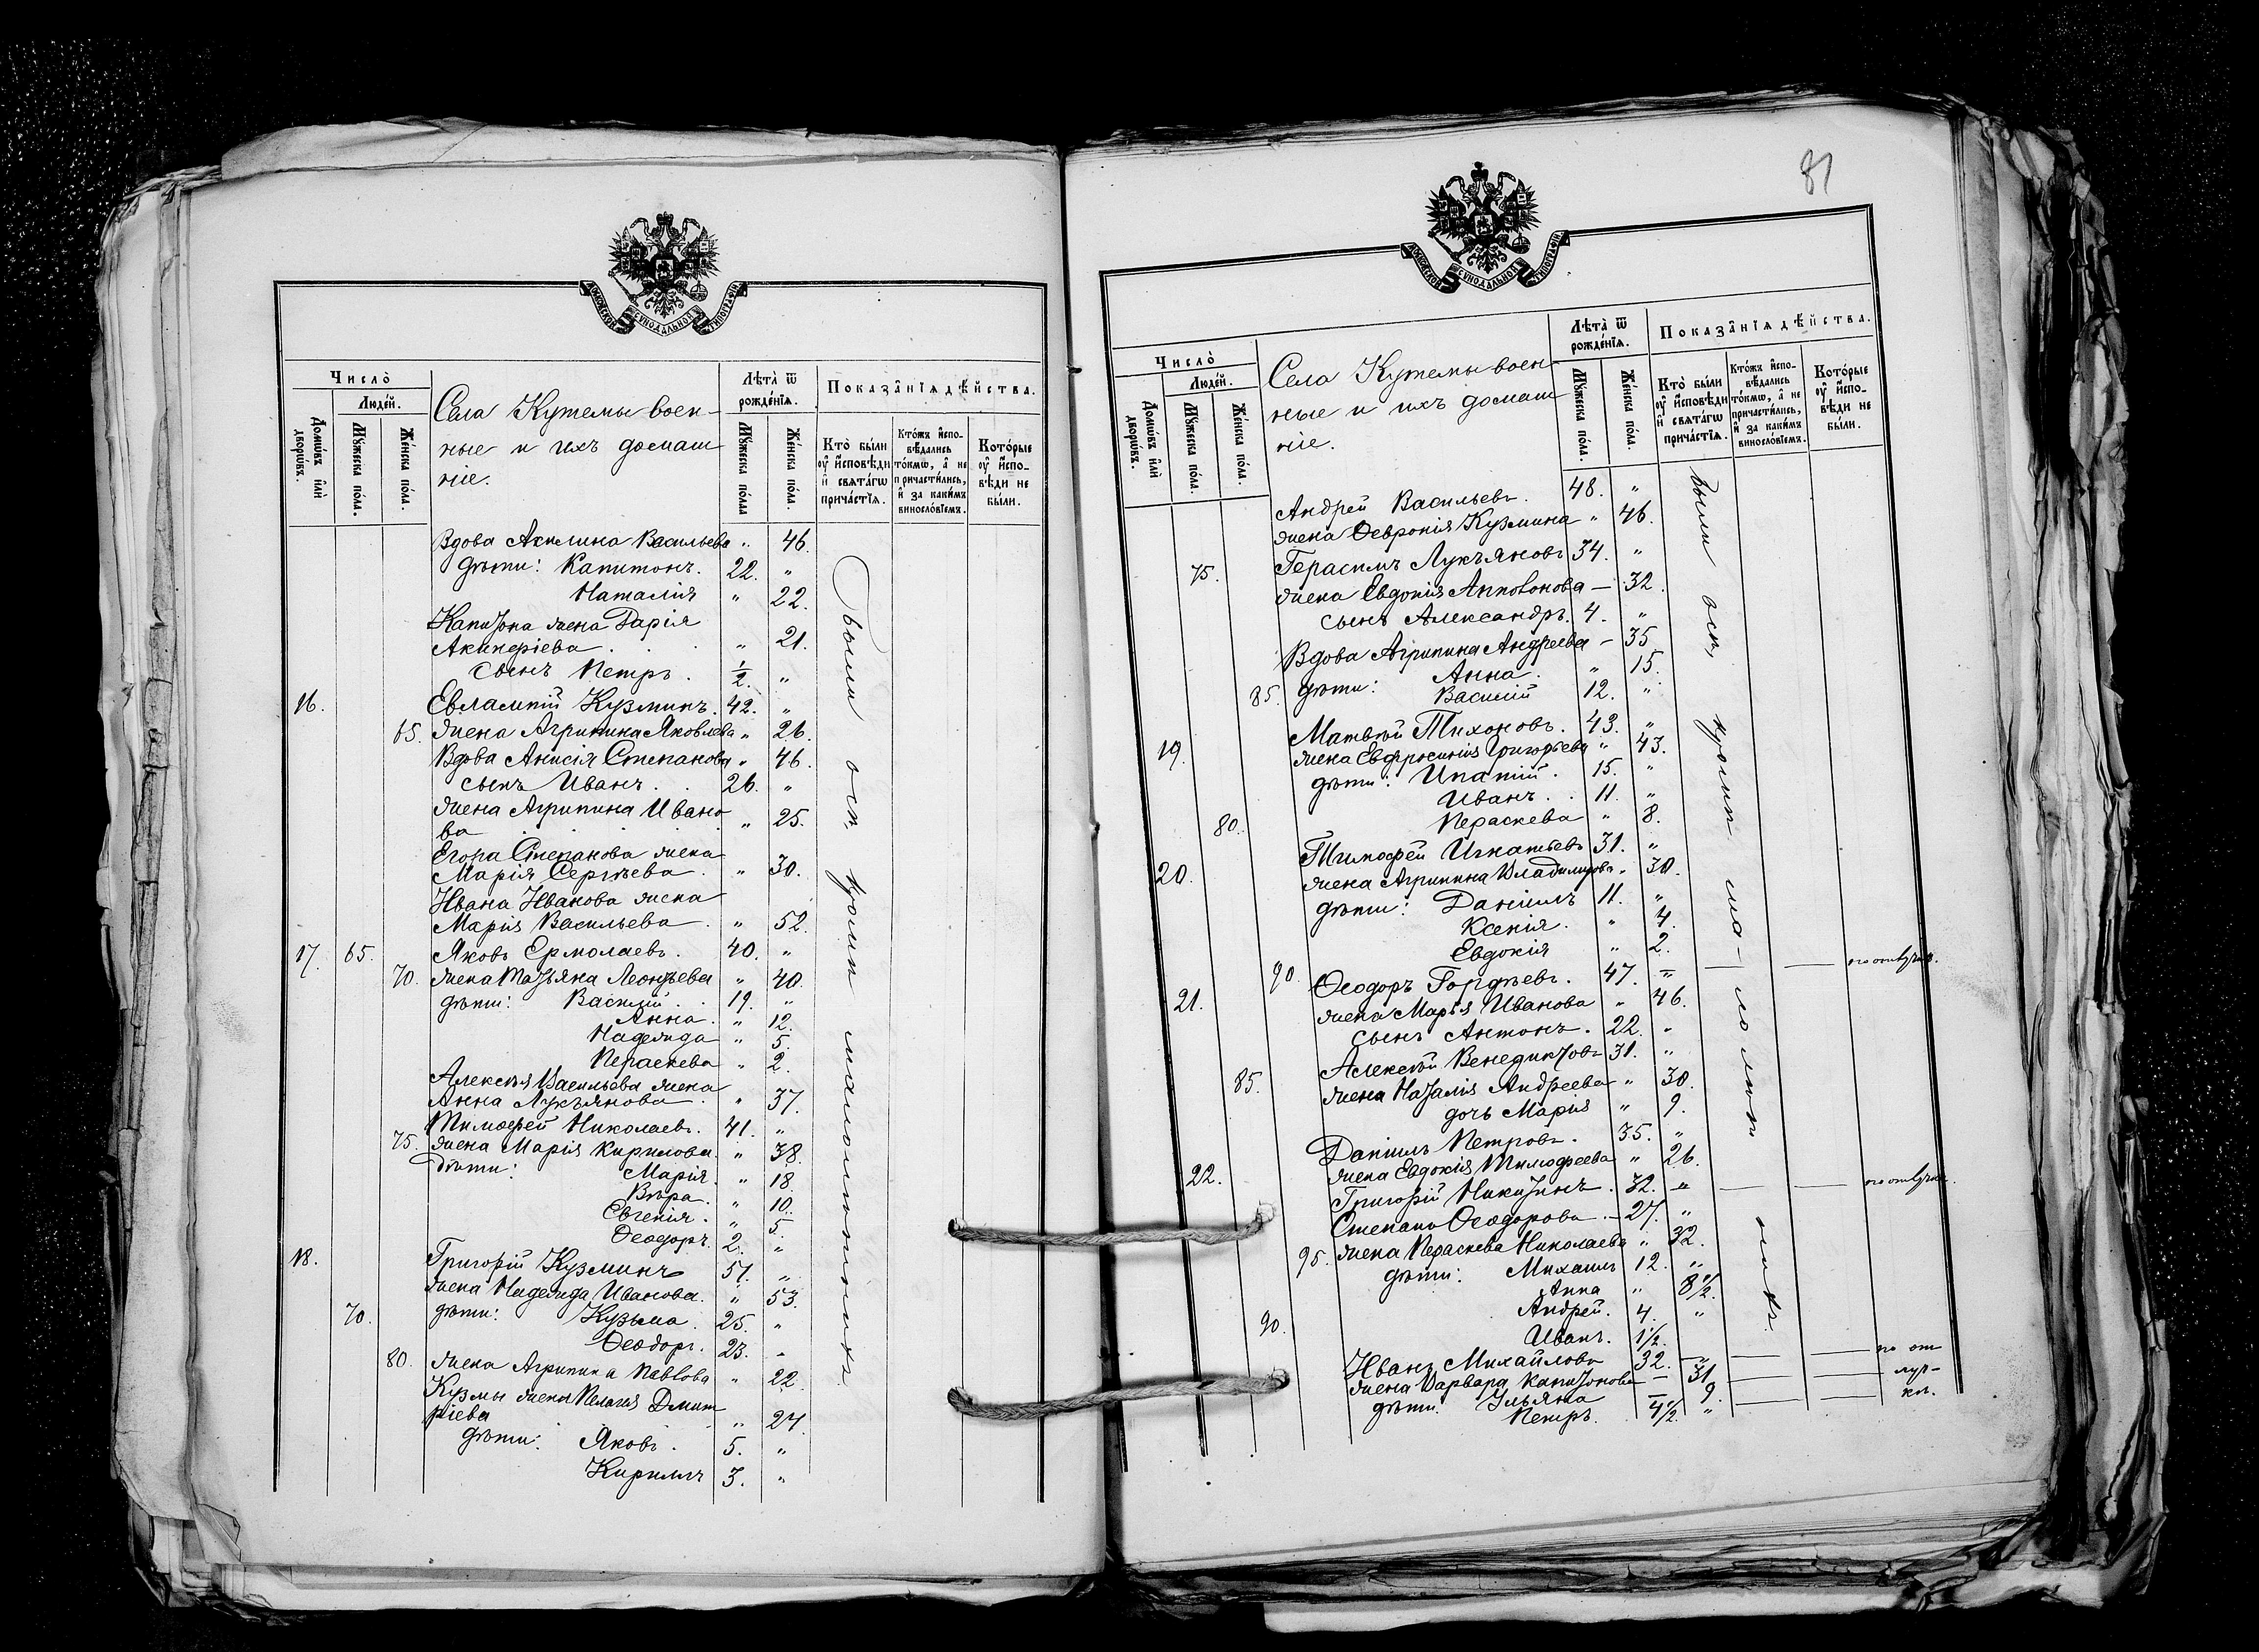 МОСКОВСКОЙ СУНОДАЛЬНОЙ ТИПОГРАФІИ
Число̀
Людéй.
Домѡ́въ и҆лѝ дворѡ́въ.
Мꙋ́жеска по́ла.
Же́нска по́ла.
Села Кутемы воен-
ные и ихъ домаш
ніе.
Лѣта̀ ѿ рожде́нїѧ.
Мꙋ́жеска по́ла
Же́нска по́ла.
Показа̂нїѧ дѣ́йства.
Кто̀ бы́ли
оу҆ и҆сповѣди
и҆ свѧта́гѡ
прича́стїѧ.
Кто́жъ и҆спо-
вѣдались
то́кмѡ, а҆ не
причасти́лись,
и҆ за каки́мъ
винослóвїемъ.
Кото́рые
оу҆ и҆спо-
вѣди не
бы́ли.
Вдова Акилина Васильева „ 46.
дѣти: Капитонъ. 22. „
Наталія „ 22.
Капитона жена Дарія
Акинфіева . . . „ 21.
сынъ Петръ. 1/2. „
16. Евлампій Кузминъ. 42. „
65. жена Агрипина Яковлева „ 26.
Вдова Анисія Степанова „ 46.
сынъ Иванъ . . 26. „
жена Агрипина Ивано
ва . . . . „ 25.
Егора Степанова жена
Марія Сергѣева . „ 30.
Ивана Иванова жена
Марія Васильева . „ 52.
17. 65. Яковъ Ермолаевъ. 40. „
70. жена Татьяна Леонтьева „ 40.
дѣти: Василій . . 19. „
Анна. „ 12.
Надежда „ 5.
Параскева „ 2.
Алексѣя Васильева жена
Анна Лукъянова . „ 37.
Тимофей Николаевъ. 41. „
75. жена Марія Кирилова. „ 38.
Дѣти: Марія. „ 18.
Вѣра. „ 10.
Евгенія. „ 5.
Ѳеодоръ. 2. „
18. Григорій Кузминъ 51. „
жена Надежда Иванова. „ 53.
70. дѣти: Кузьма. 25. „
Ѳеодоръ. 23. „
80. жена Агрипина Павлова „ 22.
Кузмы жена Пелагія Дмит
ріева „ 27.
дѣти: Яковъ. 5. „
Кириллъ 3. „
Были оси. кромѣ малолѣтнихъ.
81
МОСКОВСКОЙ СУНОДАЛЬНОЙ ТИПОГРАФІИ
Число̀
Людéй.
Домѡ́въ и҆лѝ дворѡ́въ.
Мꙋ́жеска по́ла.
Же́нска по́ла.
Села Кутемы воен-
ные и ихъ домаш
ніе.
Лѣта̀ ѿ рожде́нїѧ.
Мꙋ́жеска по́ла.
Же́нска по́ла.
Показа̂нїѧ дѣ́йства.
Кто̀ бы́ли
оу҆ и҆сповѣди
и҆ свѧта́гѡ
прича́стїѧ.
Кто́жъ и҆спо-
вѣдались
то́кмѡ, а҆ не
причасти́лись,
и҆ за каки́мъ
винослóвїемъ.
Кото́рые
оу҆ и҆спо-
вѣди не
бы́ли.
Андрей Васильевъ. 48. „
жена Ѳевронія Кузмина „ 46.
75. Герасимъ Лукъяновъ 34. „
жена Евдокія Апполонова — 32.
сынъ Александръ. 4. „
Вдова Агрипина Андреева — 35
85. дѣти: Анна. „ 15.
Василій 12. „
19. Матвѣй Тихоновъ. 43. „
жена Евфросинія Григорьева „ 43.
дѣти: Ипатій. 15. „
Иванъ. . 11. „
80. Параскева „ 8.
20. Тимофей Игнатьевъ 31. „
жена Агрипина Владимирова „ 30.
дѣти: Даніилъ 11. „
Ксенія. „ 4.
Евдокія „ 2.
90. 21. Ѳеодоръ Гордѣевъ. 47. „ — — по отлучк.
жена Марья Иванова „ 46.
сынъ Антонъ. 22. „
85. Алексѣй Венедиктовъ 31. „
жена Наталія Андреева „ 30.
дочь Марія „ 9.
22. Даніилъ Петровъ. 35. „
жена Евдокія Тимофеева „ 26.
Григорій Никитинъ. 32. „ — — по отлучк.
Степанъ Ѳеодорова. — 27. „
95. жена Параскева Николаева „ 32.
дѣти: Михаилъ 12. „
Анна „ 8½.
90. Андрей. 4. „
Иванъ. 1½.
Иванъ Михайловъ 32. „ — — по от
жена Варвара Капитонова — 31. — — луч-
дѣти. Ульяна — 9. — — кѣ.
Петръ. 4½. „
были оси, кромѣ ма-лолѣтнихъ.